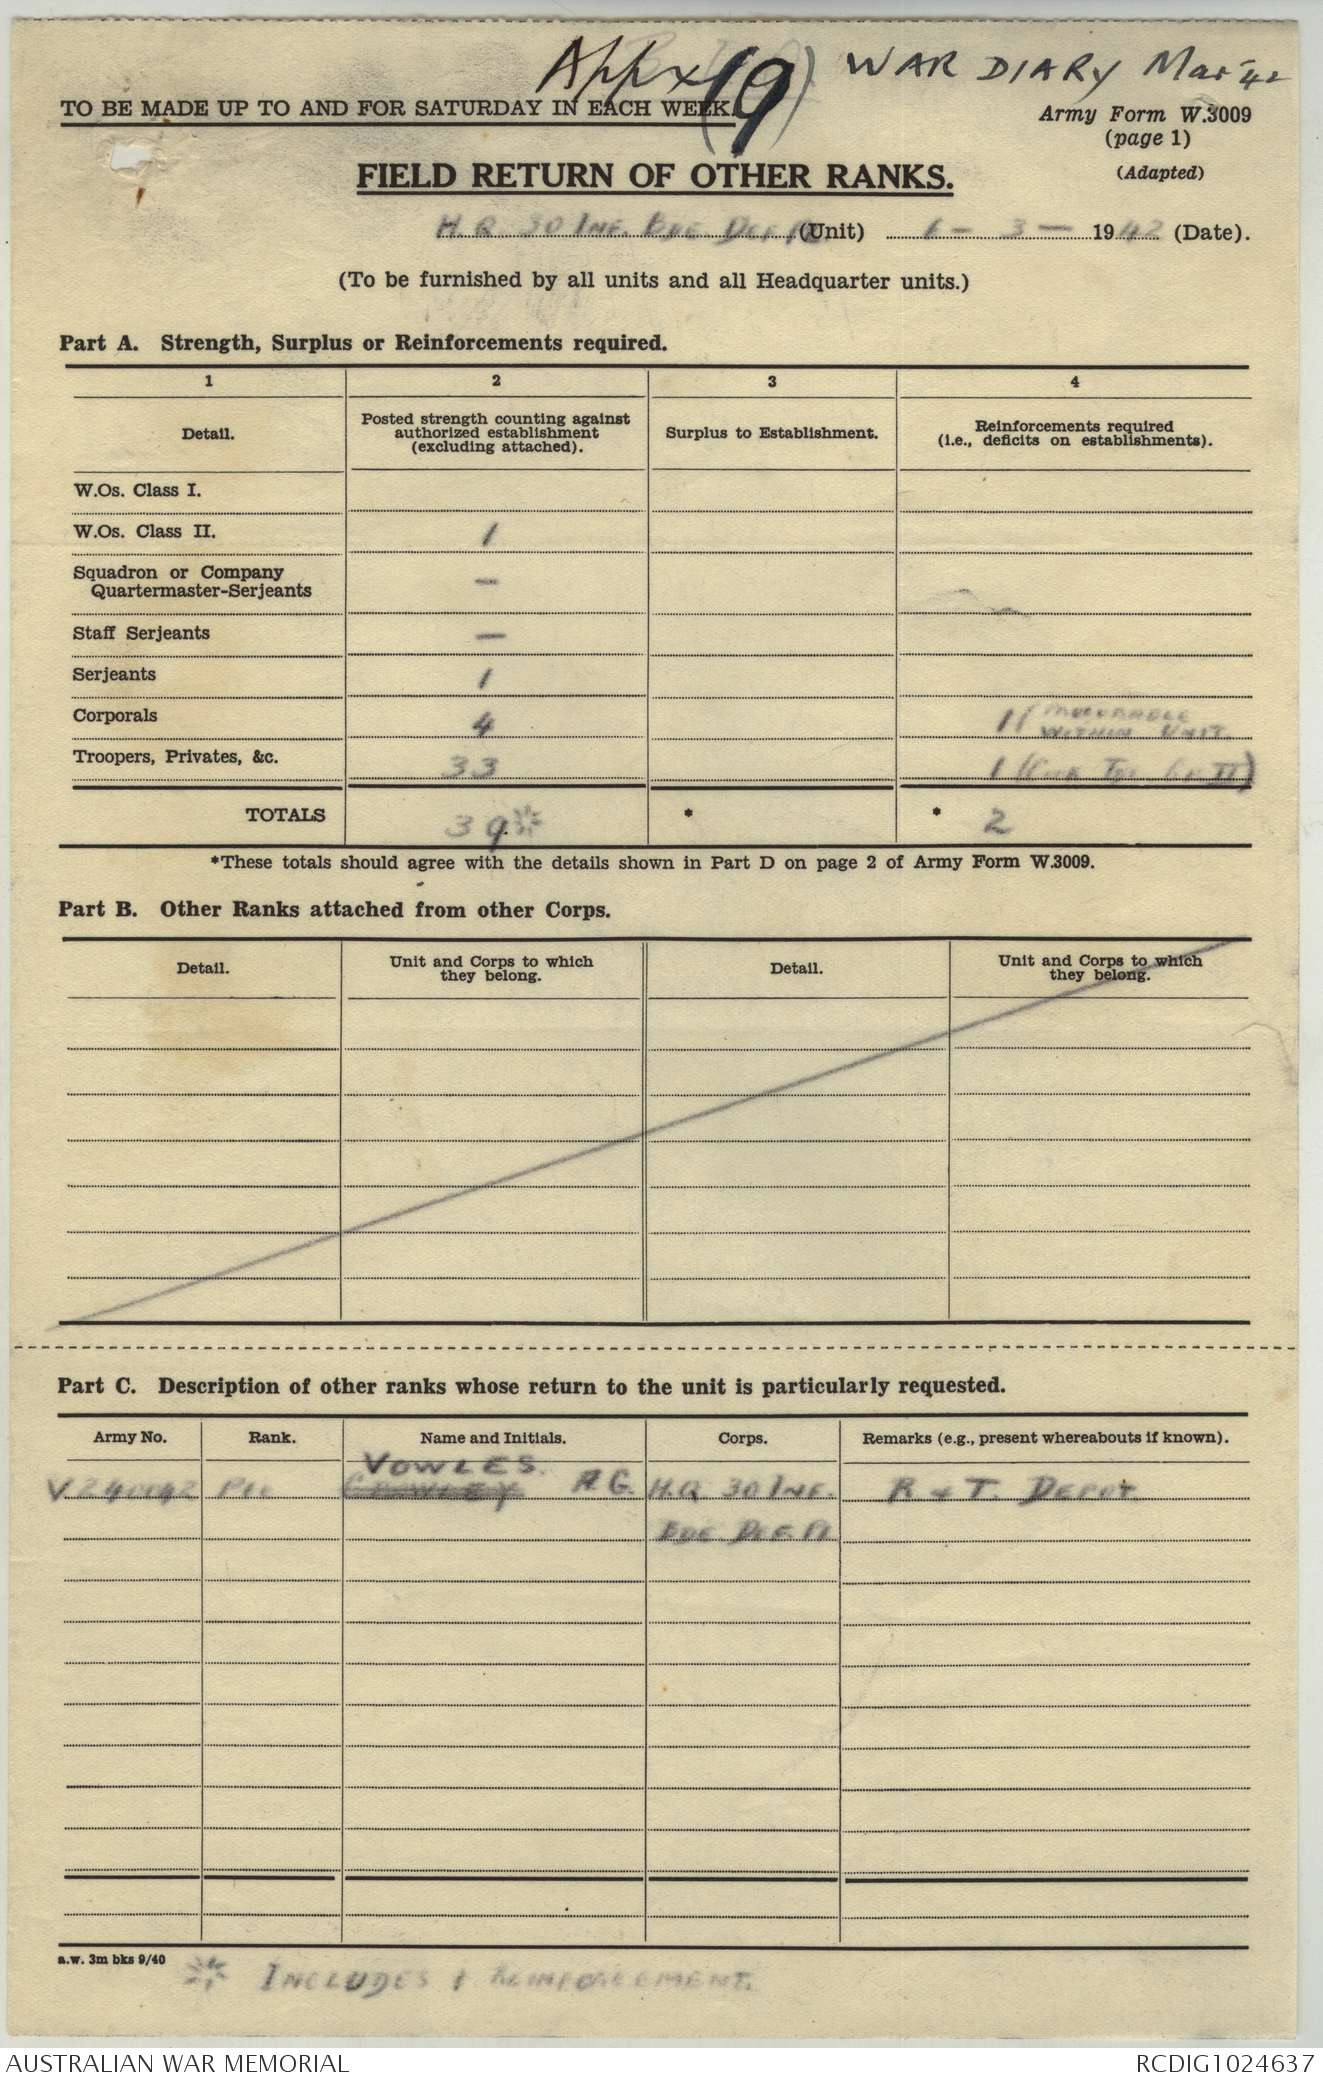 Appx (9) WAR DIARY Mar 42
TO BE MADE UP TO AND FOR SATURDAY IN EACH WEEK.
Army Form W.3009
(page 1)
(Adapted)
FIELD RETURN OF OTHER RANKS.
H.Q. 30 INF. BDE. DEF. PL. (Unit) 1 - 3 - 1942 (Date).
(To be furnished by all units and all Headquarter units.)
Part A. Strength, Surplus or Reinforcements required.
1 2 3 4
Detail. Posted strength counting against authorized establishment (excluding attached). Surplus to Establishment. Reinforcements required (i.e., deficits on establishments).
W.Os. Class I.
W.Os. Class II. 1
Squadron or Company Quartermaster-Serjeants —
Staff Serjeants —
Serjeants 1
Corporals 4 1 ( WITHIN UNIT.
Troopers, Privates, &c. 33 1 (
TOTALS 39 * * 2
*These totals should agree with the details shown in Part D on page 2 of Army Form W.3009.
Part B. Other Ranks attached from other Corps.
Detail. Unit and Corps to which they belong. Detail. Unit and Corps to which they belong.
Part C. Description of other ranks whose return to the unit is particularly requested.
Army No. Rank. Name and Initials. Corps. Remarks (e.g., present whereabouts if known).
VOWLES.
Pte A G. H.Q. 30 INF. R & T. DEPOT.
BDE DEF. Pl
a.w. 3m bks 9/40
* INCLUDES 1 REINFORCEMENT.
AUSTRALIAN WAR MEMORIAL RCDIG1024637